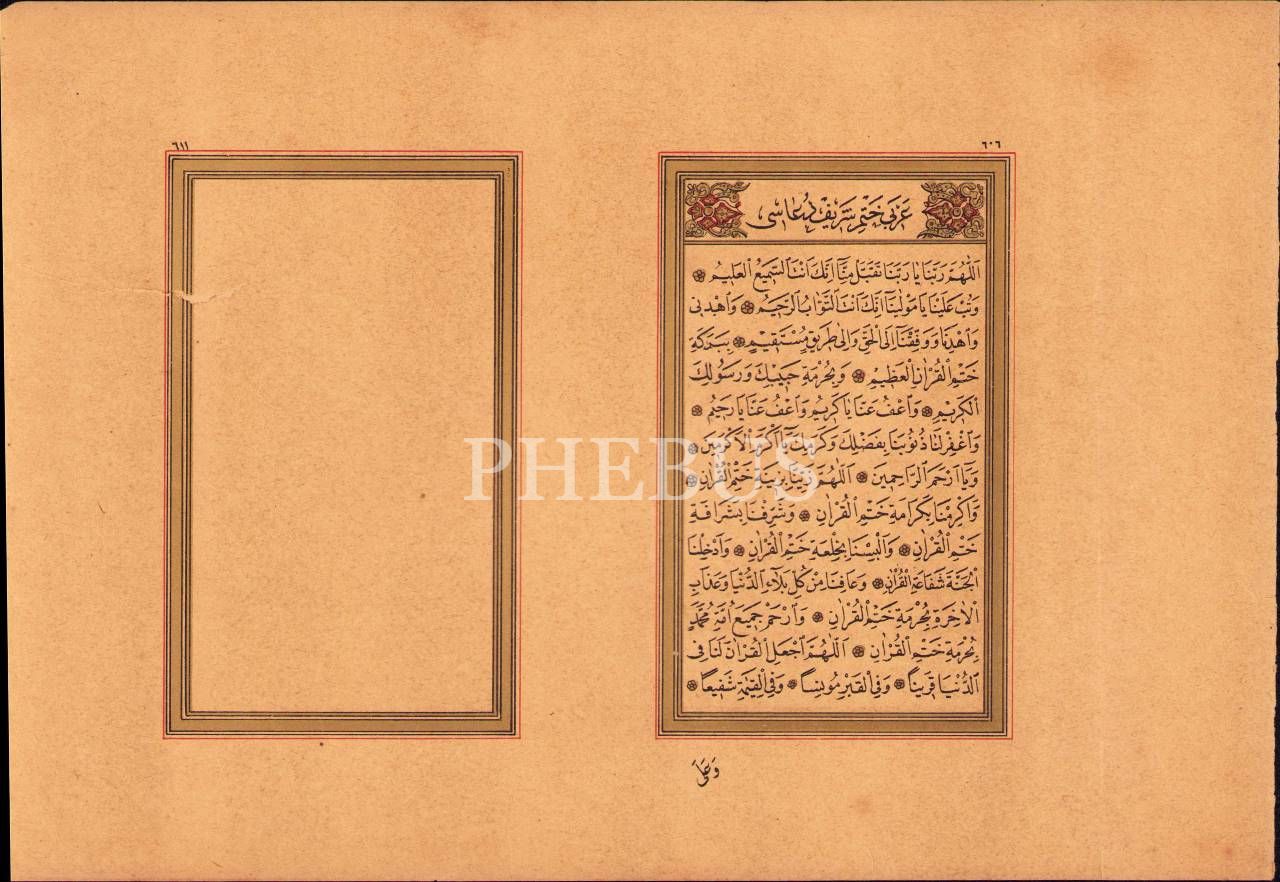 ٦٠٦
عَرَبِي خَتْمِ شَرِيفْ دُعَاسِي
اَللّٰهُمَّ رَبَّنَا يَا رَبَّنَا تَقَبَّلْ مِنَّا اِنَّكَ اَنْتَ السَّمِيعُ الْعَلِيمُ
وَتُبْ عَلَيْنَا يَا مَوْلٰينَا اِنَّكَ اَنْتَ التَّوَّابُ الرَّحِيمُ وَاهْدِنِى
وَاهْدِنَا وَوَفِّقْنَا اِلَى الْحَقِّ وَاِلٰى طَرِيقٍ مُسْتَقِيمٍ بِبَرَكَةِ
خَتْمِ الْقُرْاٰنِ الْعَظِيمِ وَبِحُرْمَةِ حَبِيبِكَ وَرَسُولِكَ
الْكَرِيمِ وَاعْفُ عَنَّا يَا كَرِيمُ وَاعْفُ عَنَّا يَا رَحِيمُ
وَاغْفِرْ لَنَا ذُنُوبَنَا بِفَضْلِكَ وَكَرَمِكَ يَا اَكْرَمَ الْاَكْرَمِينَ
وَيَا اَرْحَمَ الرَّاحِمِينَ اَللّٰهُمَّ زَيِّنَّا بِزِينَةِ خَتْمِ الْقُرْاٰنِ
وَاَكْرِمْنَا بِكَرَامَةِ خَتْمِ الْقُرْاٰنِ وَشَرِّفْنَا بِشَرَافَةِ
خَتْمِ الْقُرْاٰنِ وَاَلْبِسْنَا بِخِلْعَةِ خَتْمِ الْقُرْاٰنِ وَاَدْخِلْنَا
الْجَنَّةَ بِشَفَاعَةِ الْقُرْاٰنِ وَعَافِنَا مِنْ كُلِّ بَلَاءِ الدُّنْيَا وَعَذَابِ
الْاٰخِرَةِ بِحُرْمَةِ خَتْمِ الْقُرْاٰنِ وَارْحَمْ جَمِيعَ اُمَّةِ مُحَمَّدٍ
بِحُرْمَةِ خَتْمِ الْقُرْاٰنِ اَللّٰهُمَّ اجْعَلِ الْقُرْاٰنَ لَنَا فِى
الدُّنْيَا قَرِينًا وَفِى الْقَبْرِ مُونِسًا وَفِى الْقِيٰمَةِ شَفِيعًا
وَعَلَى
٦١١
PHEBUS